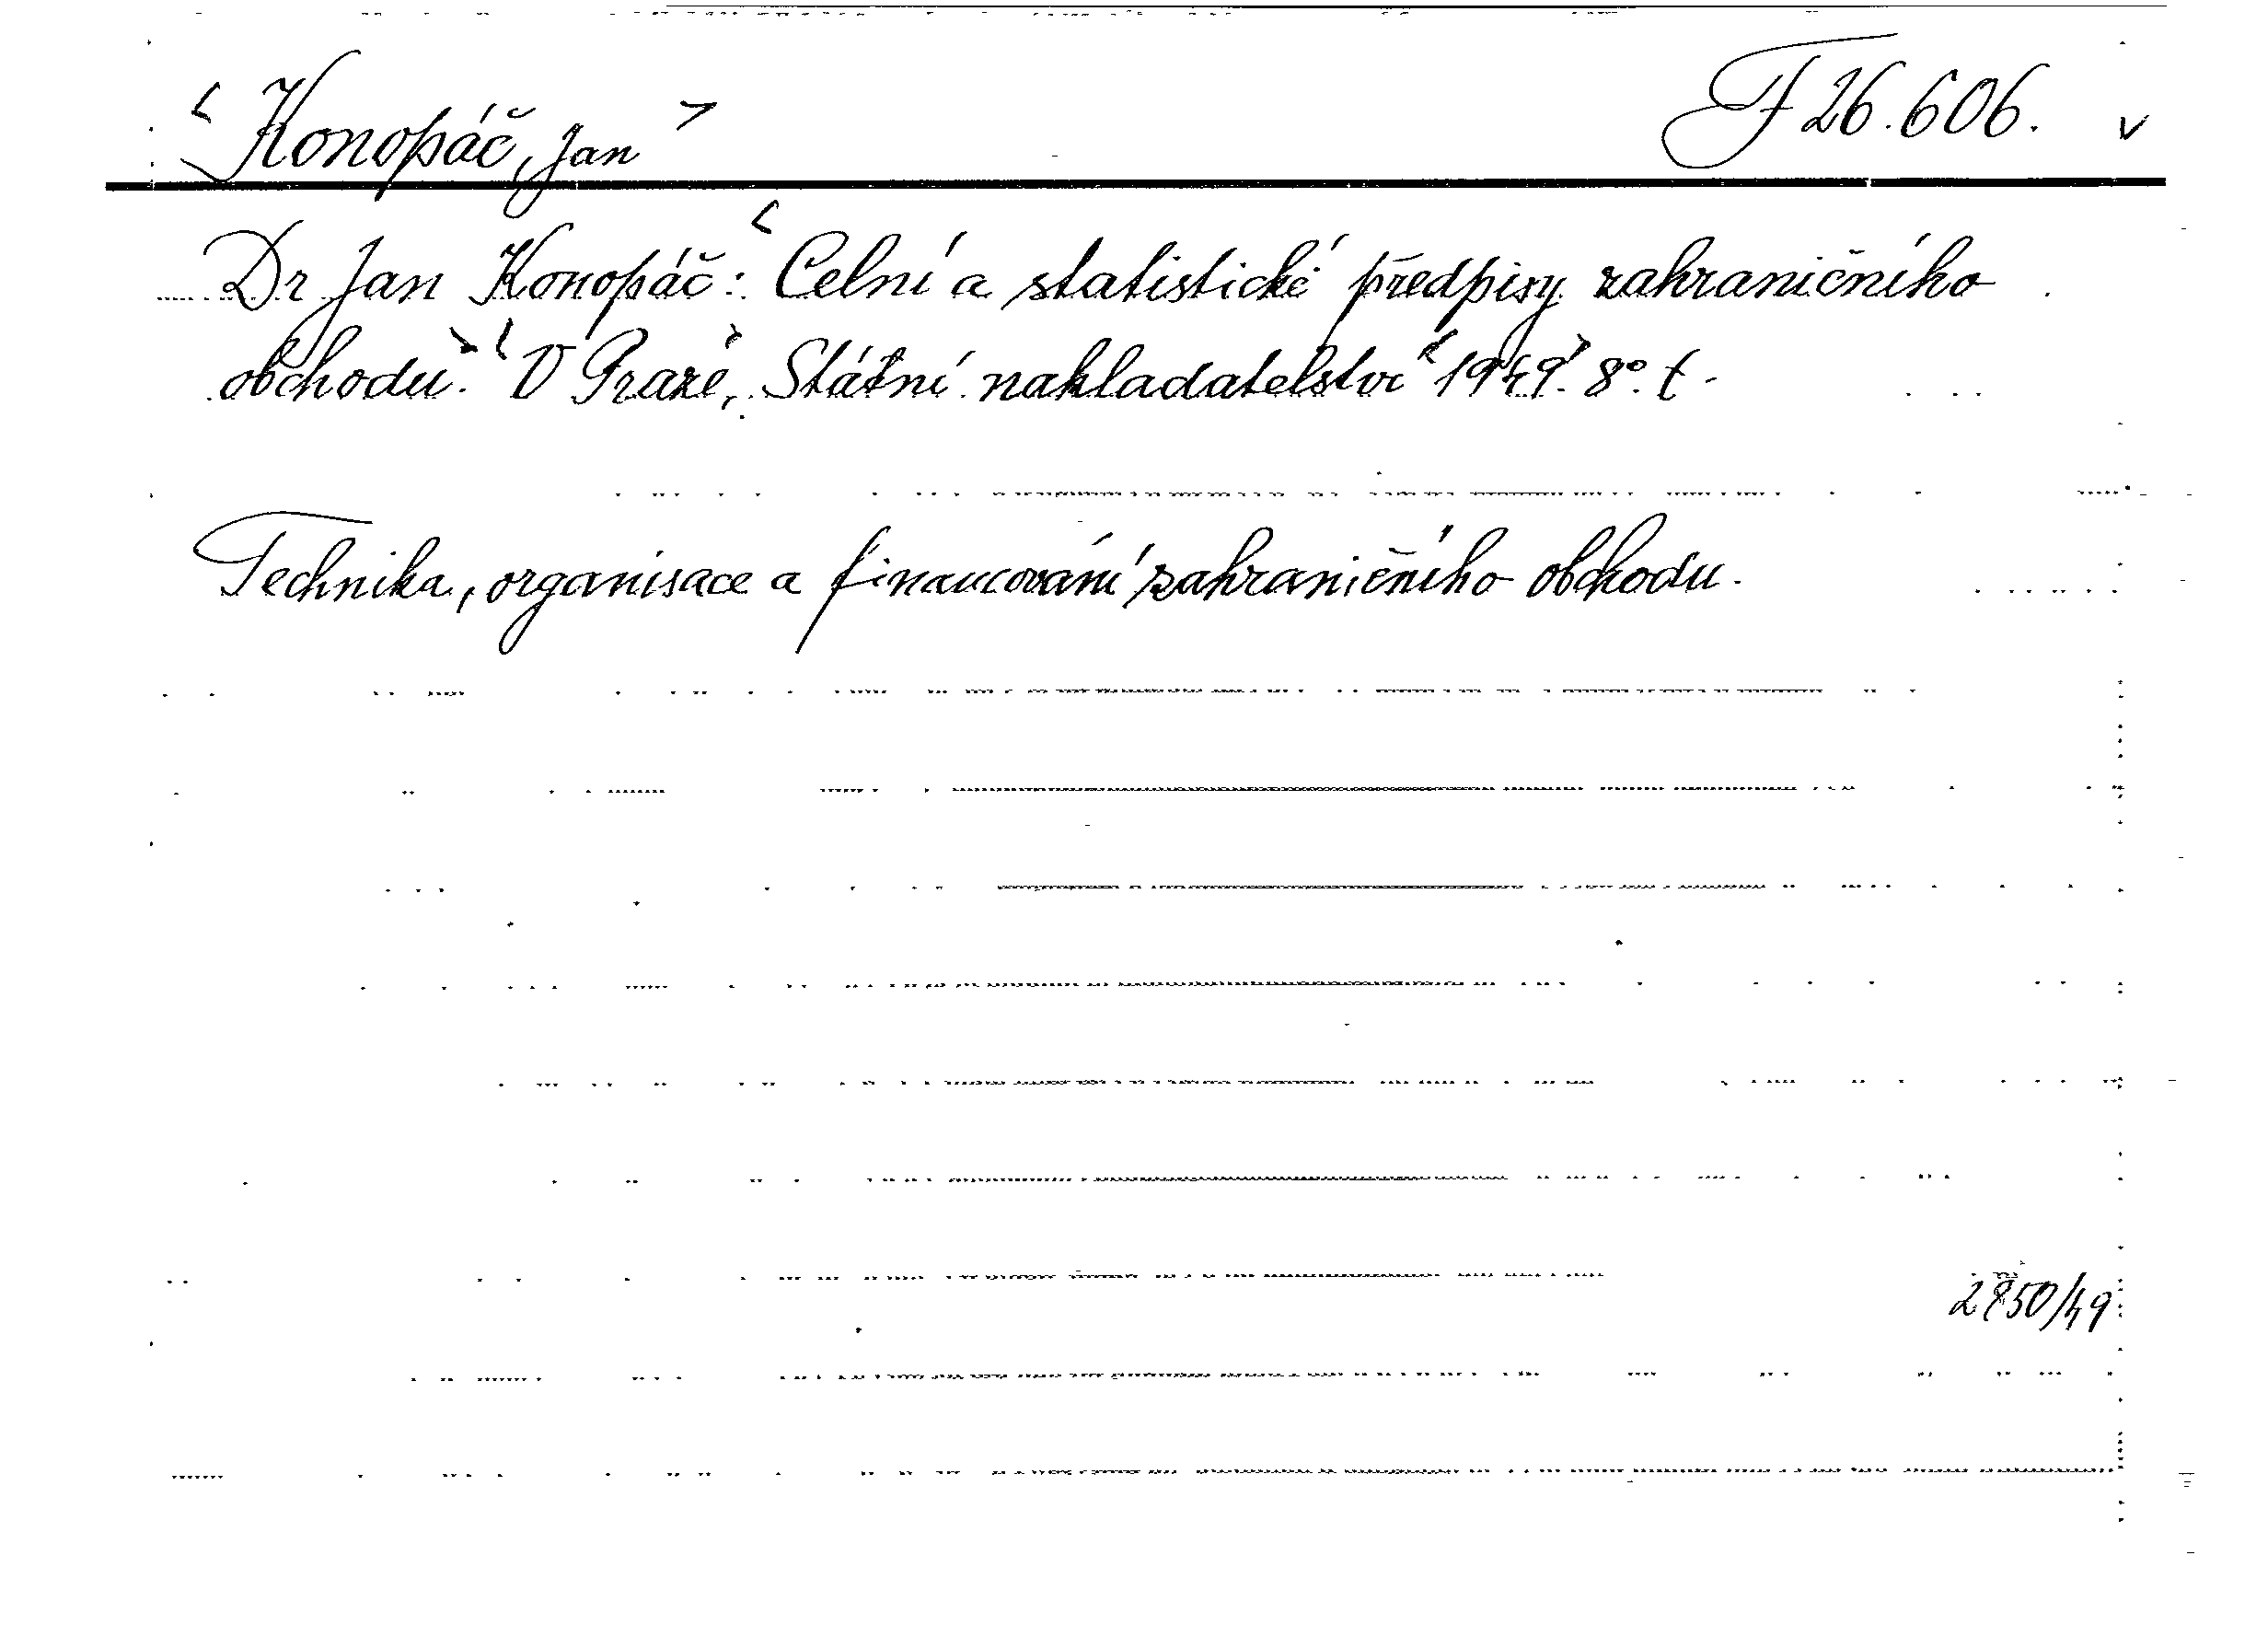 < Konopáč, Jan > F 26.606. v
Dr Jan Konopáč: < Celní a statistické předpisy zahraničního
obchodu. > < V Praze, > Státní nakladatelství < 1949. > 8°. t.
Technika, organisace a financování zahraničního obchodu.
/49